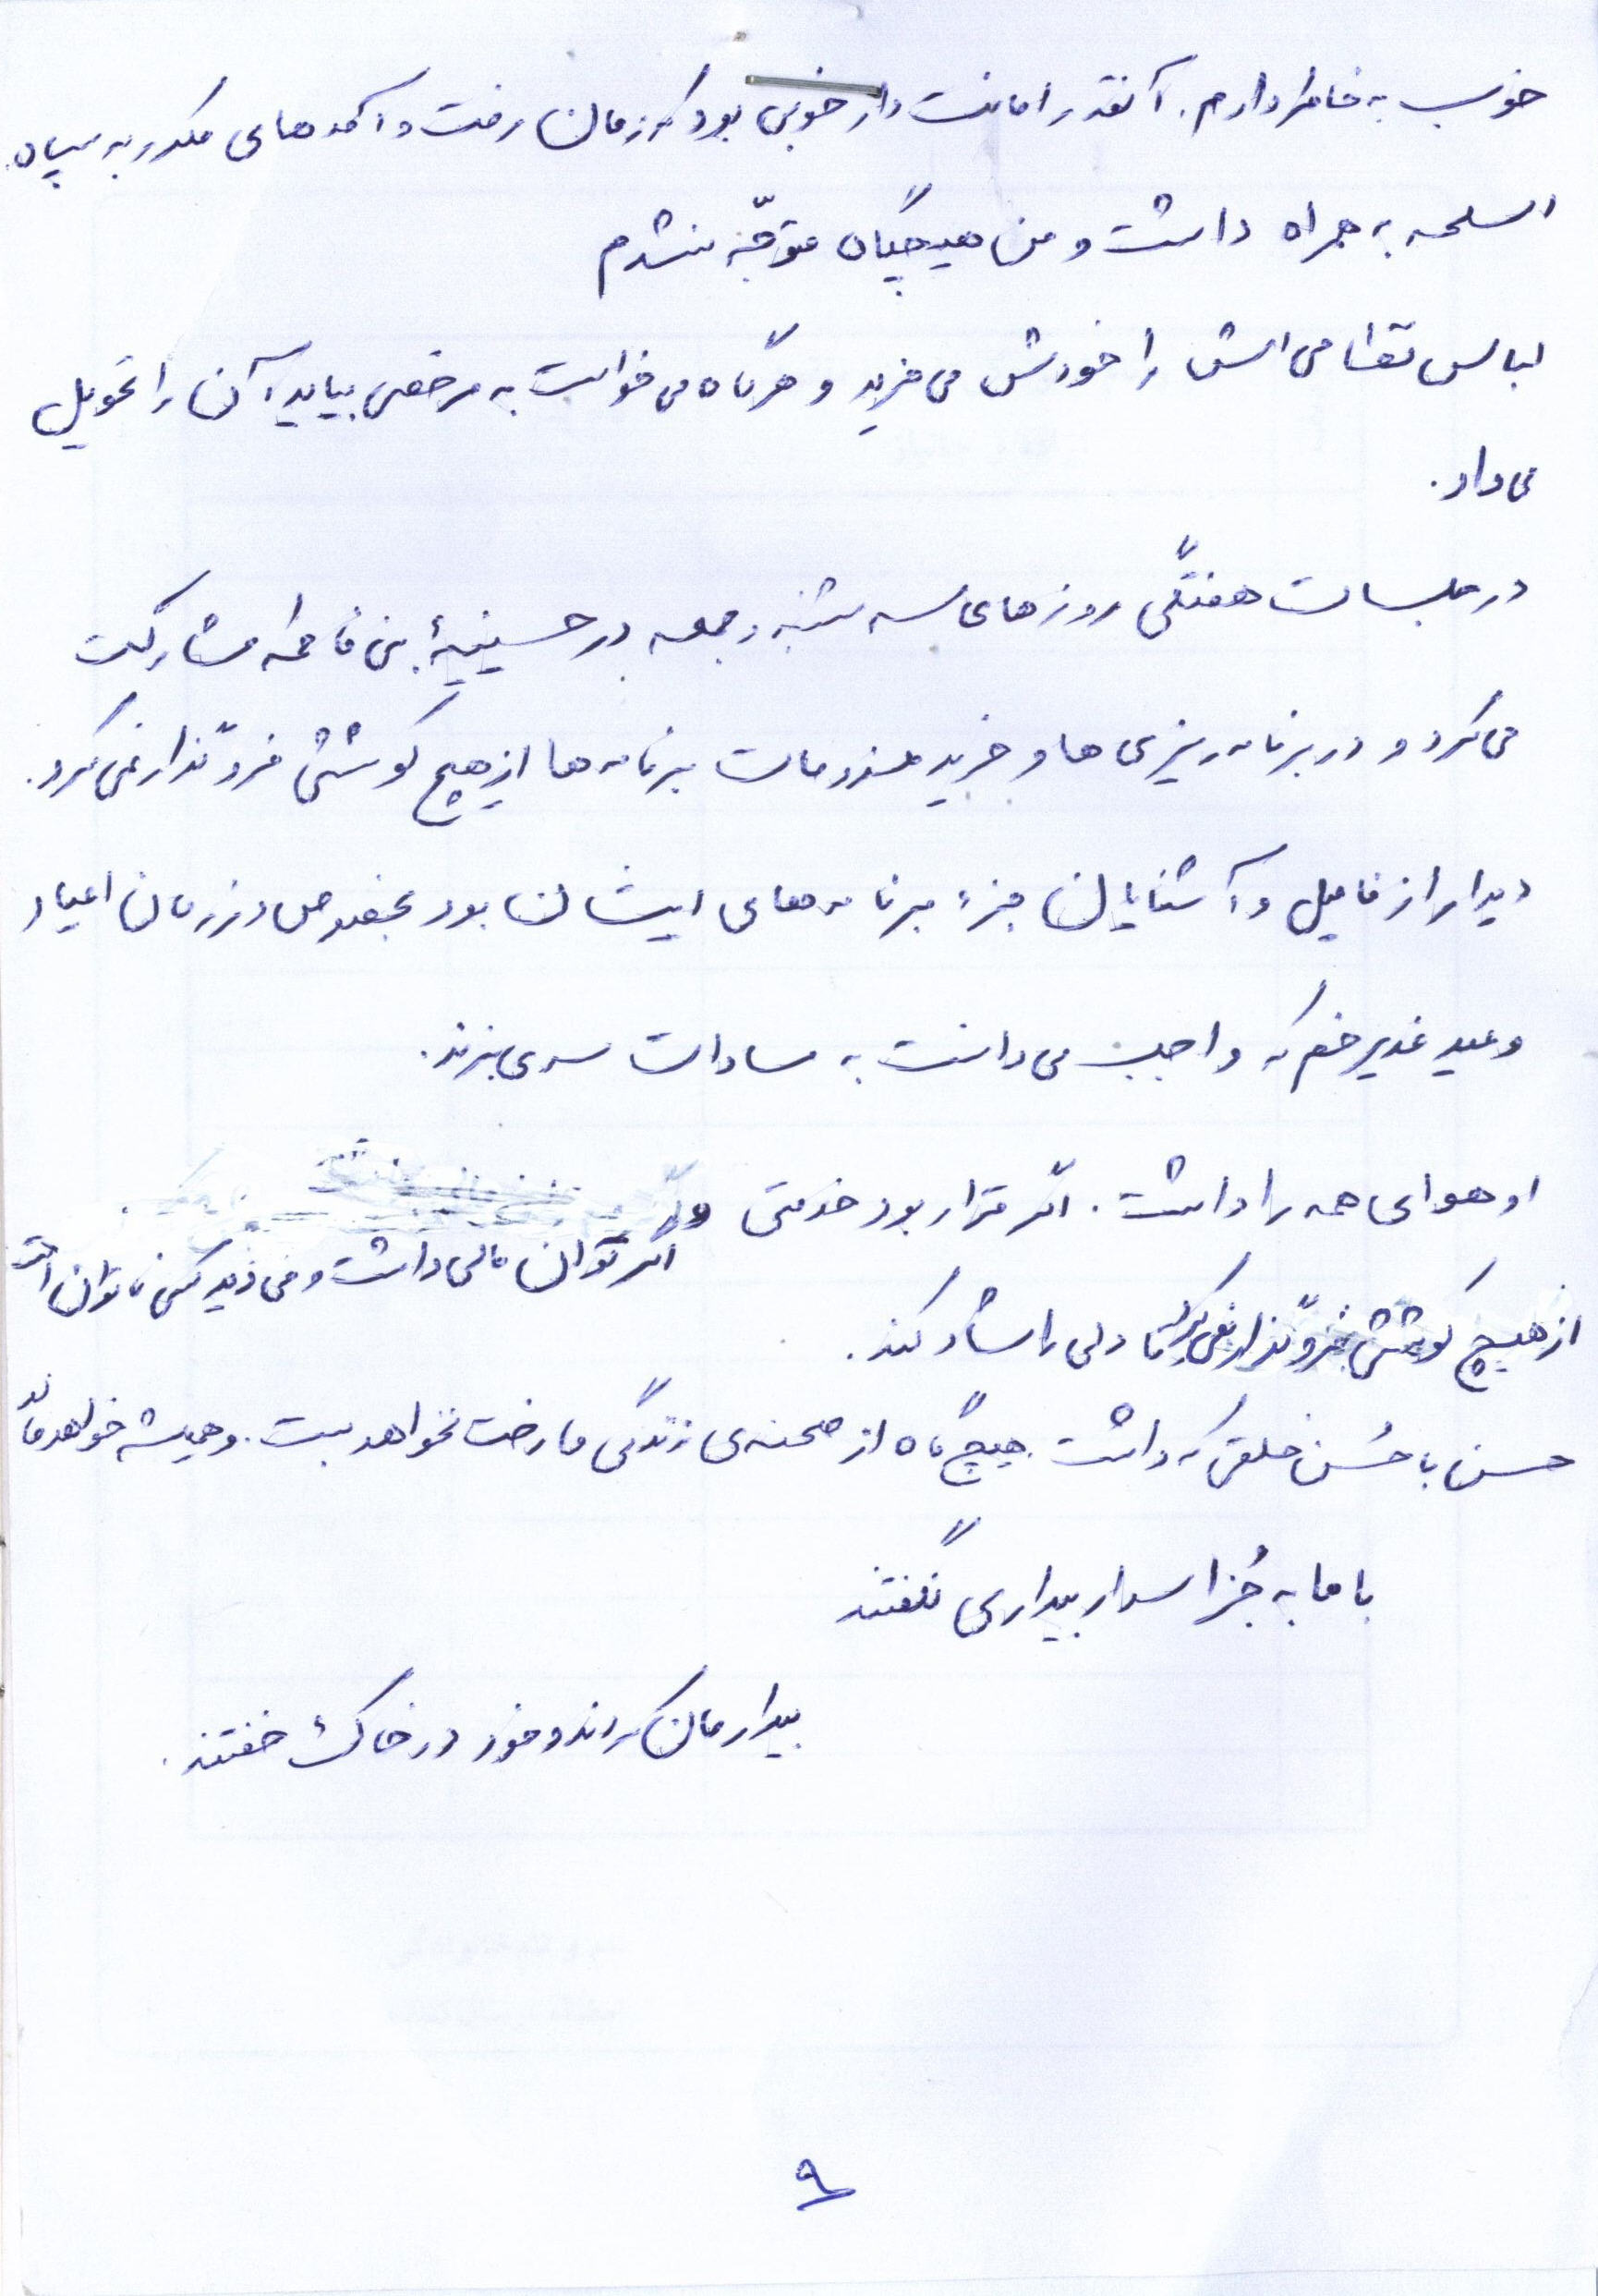 خوب به خاطر دارم. آنقدر امانت دار خوبی بود که زمان رفت و آمدهای مکرر به سپاه
اسلحه به همراه داشت و من هیچگاه متوجّه نشدم
لباس نظامی اش را خودش می خرید و هرگاه می خواست به مرخصی بیاید، آن را تحویل
می داد.
در جلسات هفتگی روزهای سه شنبه و جمعه در حسینیهٔ بنی فاطمه مشارکت
می کرد و در برنامه ریزی ها و خرید ملزومات برنامه ها از هیچ کوششی فروگذار نمی کرد.
دیدار از فامیل و آشنایان جزء برنامه های ایشان بود بخصوص در زمان اعیاد
و عید غدیر خم که واجب می دانست به سادات سری بزند.
او هوای همه را داشت. اگر قرار بود خدمتی و
اگر توان مالی داشت و می دید کسی ناتوان است
از هیچ کوششی فروگذار نمی کرد تا دلی را شاد کند.
حسن با حُسن خلقی که داشت هیچ گاه از صحنه ی زندگی ما رخت نخواهد بست. و همیشه خواهد ماند
با ما به جُز اسرار بیداری نگفتند
بیدارمان کردند و خود در خاک خفتند.
۹